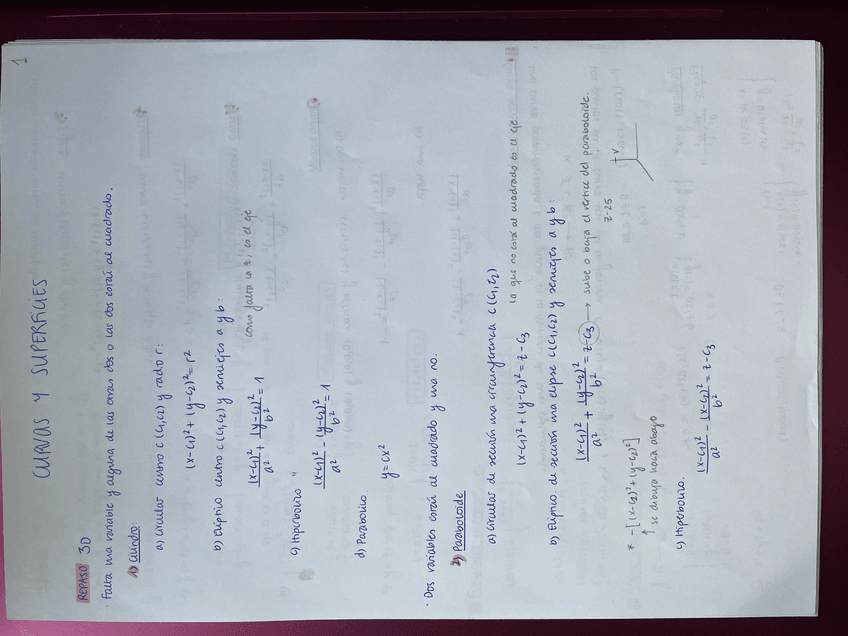 1
CURVAS Y SUPERFICIES
REPASO 3D
· Falta una variable y alguna de las otras dos o las dos están al cuadrado.
1) Cilindro:
a) Circular centro C(C₁,C₂) y radio r:
(x-C₁)² + (y-C₂)² = r²
b) Elíptico centro C(C₁,C₂) y semiejes a y b:
(x-C₁)²/a² + (y-C₂)²/b² = 1
como falta la z, es el eje
c) Hiperbólico "
(x-C₁)²/a² - (y-C₂)²/b² = 1
d) Parabólico.
y = cx²
· Dos variables están al cuadrado y una no.
2) Paraboloide
a) Circular de sección una circunferencia C(C₁,C₂)
la que no está al cuadrado es el eje
(x-C₁)² + (y-C₂)² = z-C₃
b) Elíptico de sección una elipse C(C₁,C₂) y semiejes a y b:
(x-C₁)²/a² + (y-C₂)²/b² = z-C₃ → sube o baja el vértice del paraboloide.
z-25
* -[(x-C₂)² + (y-C₂)²]
↑ se dibuja hacia abajo
c) Hiperbólico.
(x-C₁)²/a² - (x-C₂)²/b² = z-C₃